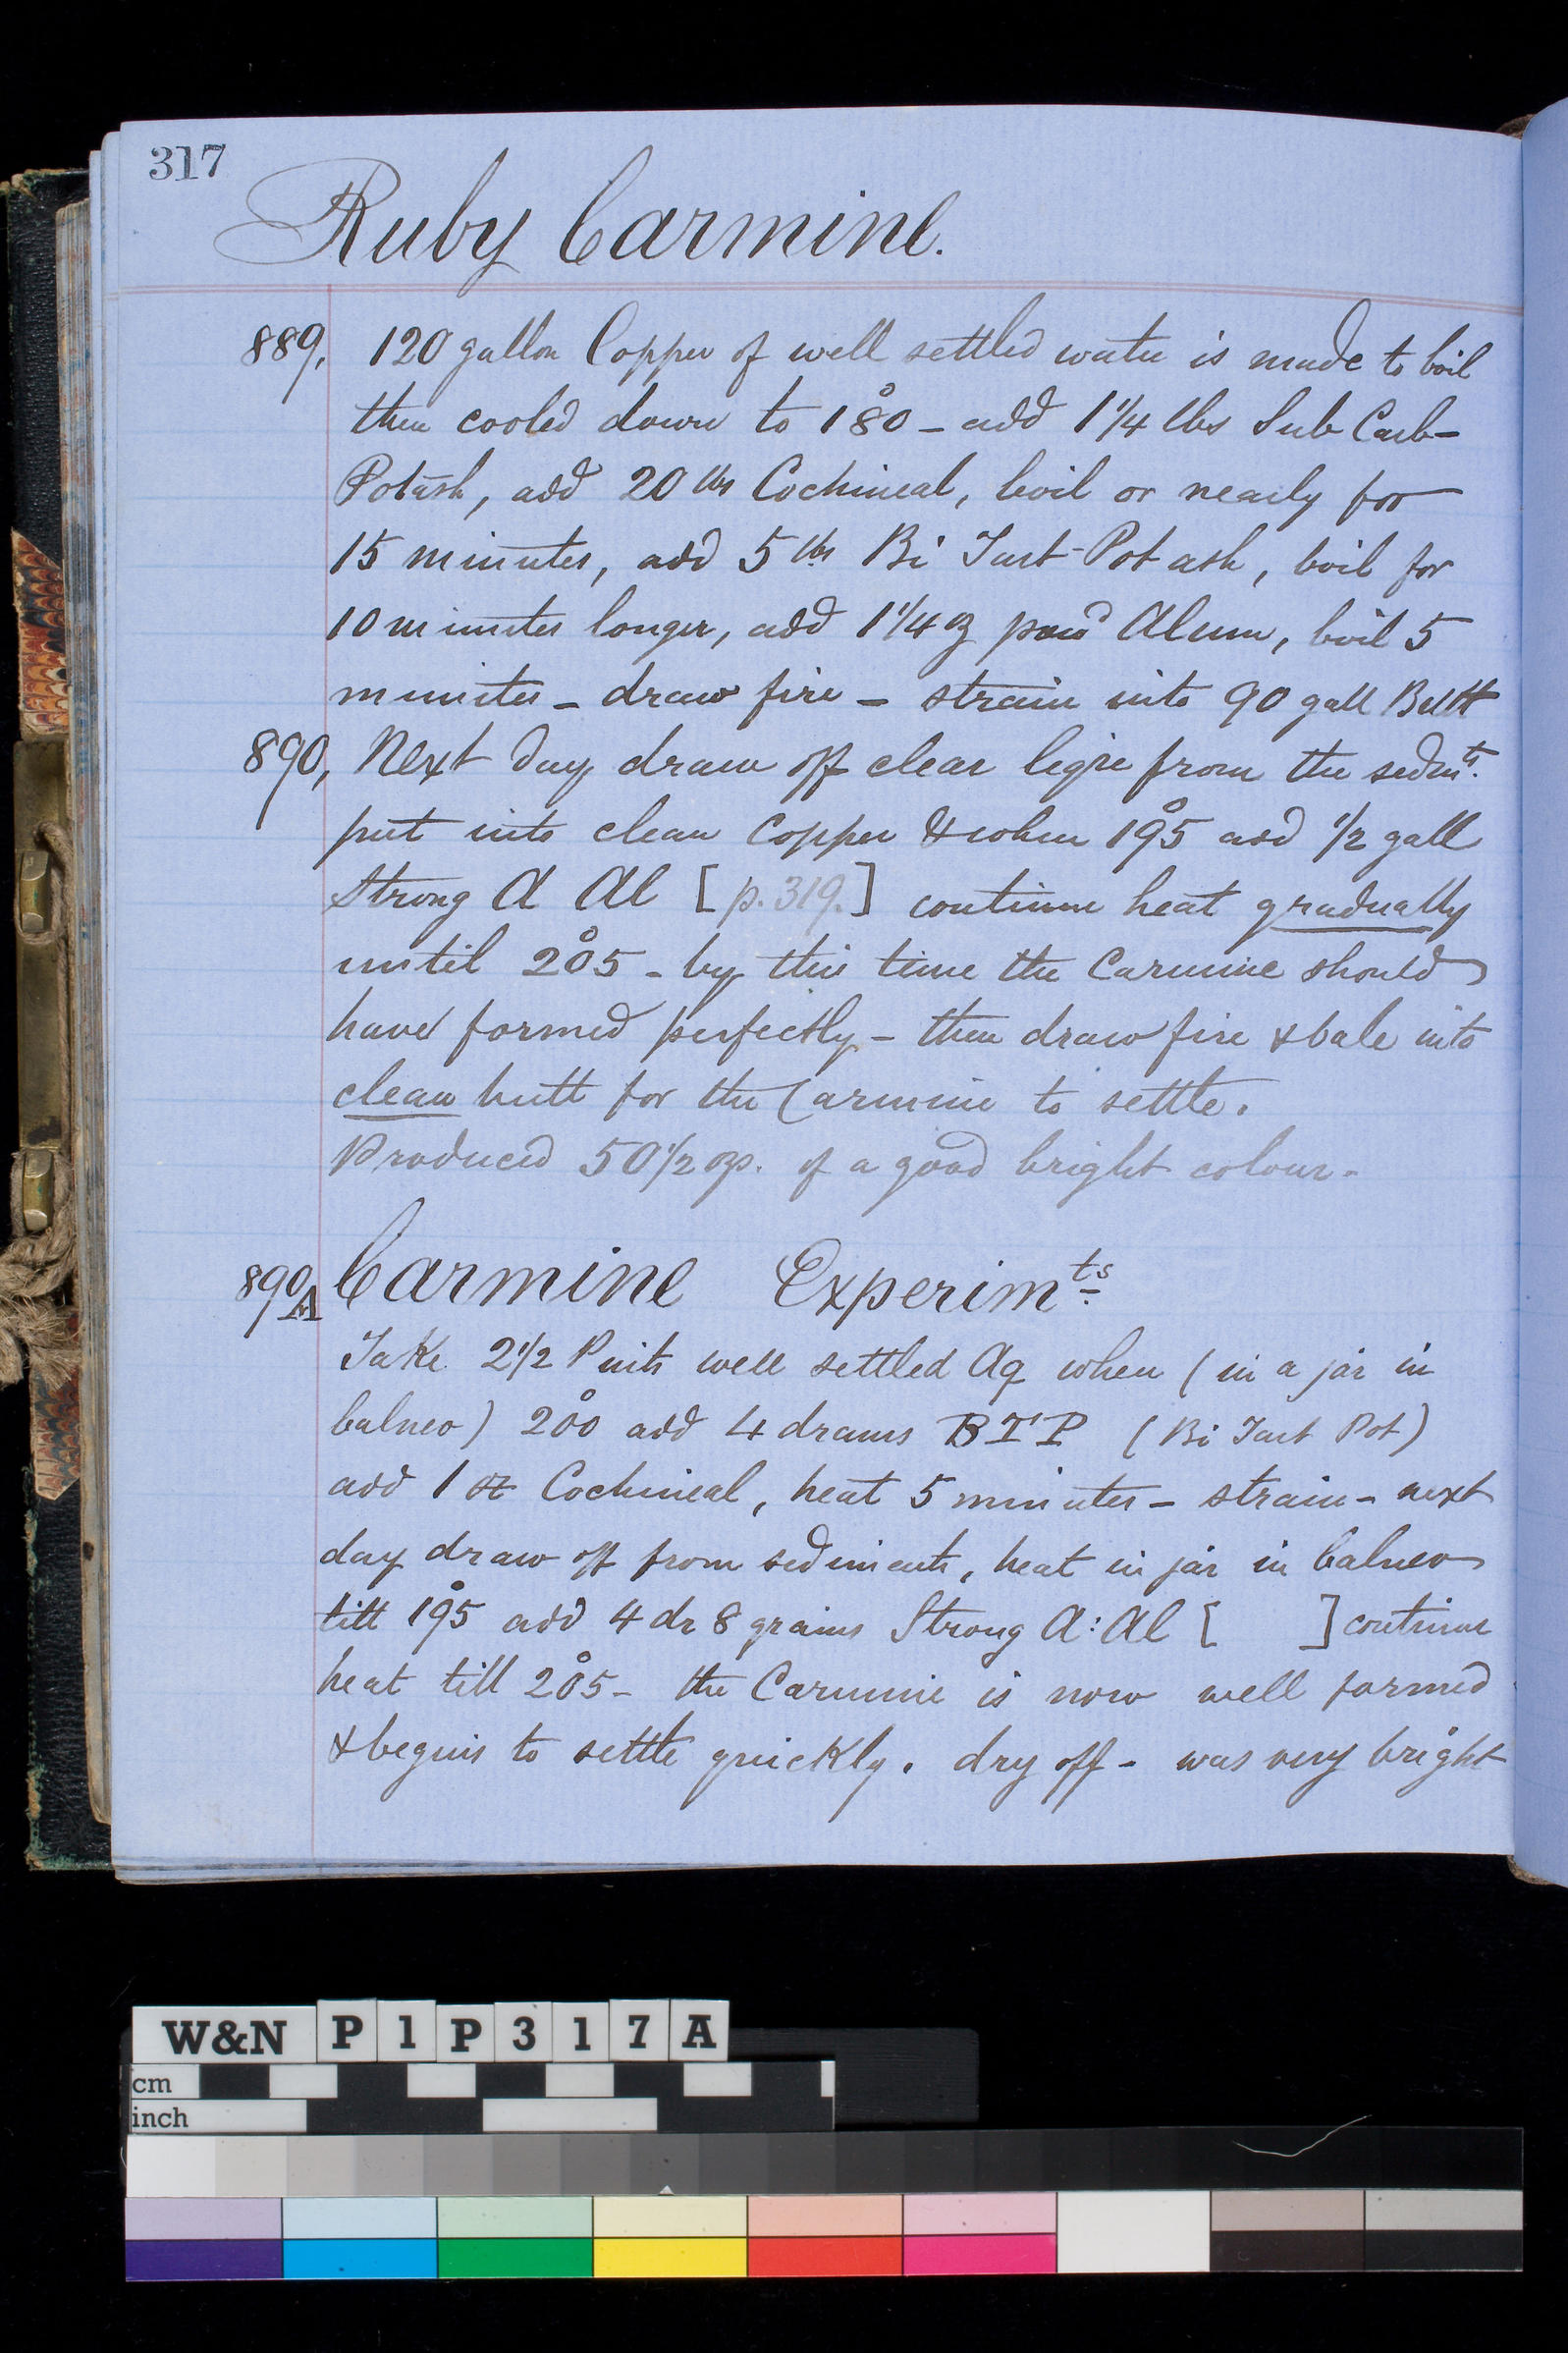 317
Ruby Carmine.
889, 120 gallon Copper of well settled water is made to boil
then cooled down to 180° - add 1 1/4 lbs Sub Carb-
Potash, add 20 lbs Cochineal, boil or nearly for
15 minutes, add 5 lbs Bi Tart-Potash, boil for
10 minutes longer, add 1 1/4 oz powd Alum, boil 5
minutes - draw fire - strain into 90 gall Butt
890, Next day draw off clear liqre from the sedmts.
put into clean Copper & when 195° add 1/2 gall
Strong A Al [p. 319.] continue heat gradually
until 205° - by this time the Carmine should
have formed perfectly - then draw fire & bale into
clean butt for the Carmine to settle.
Produced 50 1/2 ozs. of a good bright colour -
890/A Carmine Experimts.
Take 2 1/2 Pints well settled Aq when (in a jar in
balneo) 200° add 4 drams BTP (Bi Tart Pot)
add 1 oz Cochineal, heat 5 minutes - strain - next
day draw off from sediments, heat in jar in balneo
till 195° add 4 dr 8 grains Strong A: Al [ ] continue
heat till 205° - the Carmine is now well formed
& begins to settle quickly. dry off - was very bright
W&N P1P317A
cm
inch